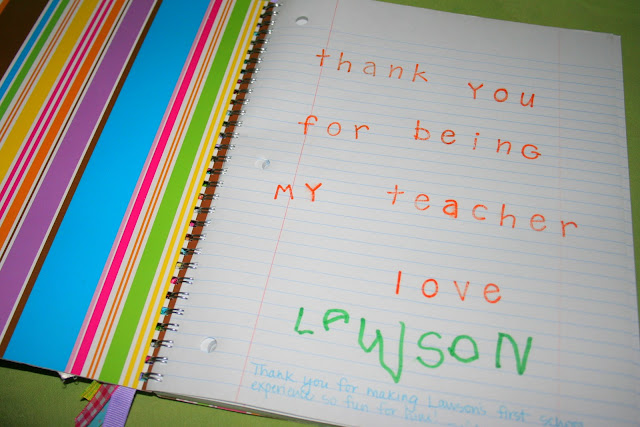 thank you
for being
MY teacher
love
LAWSON
Thank you for making Lawson's first school
experience so fun for him!